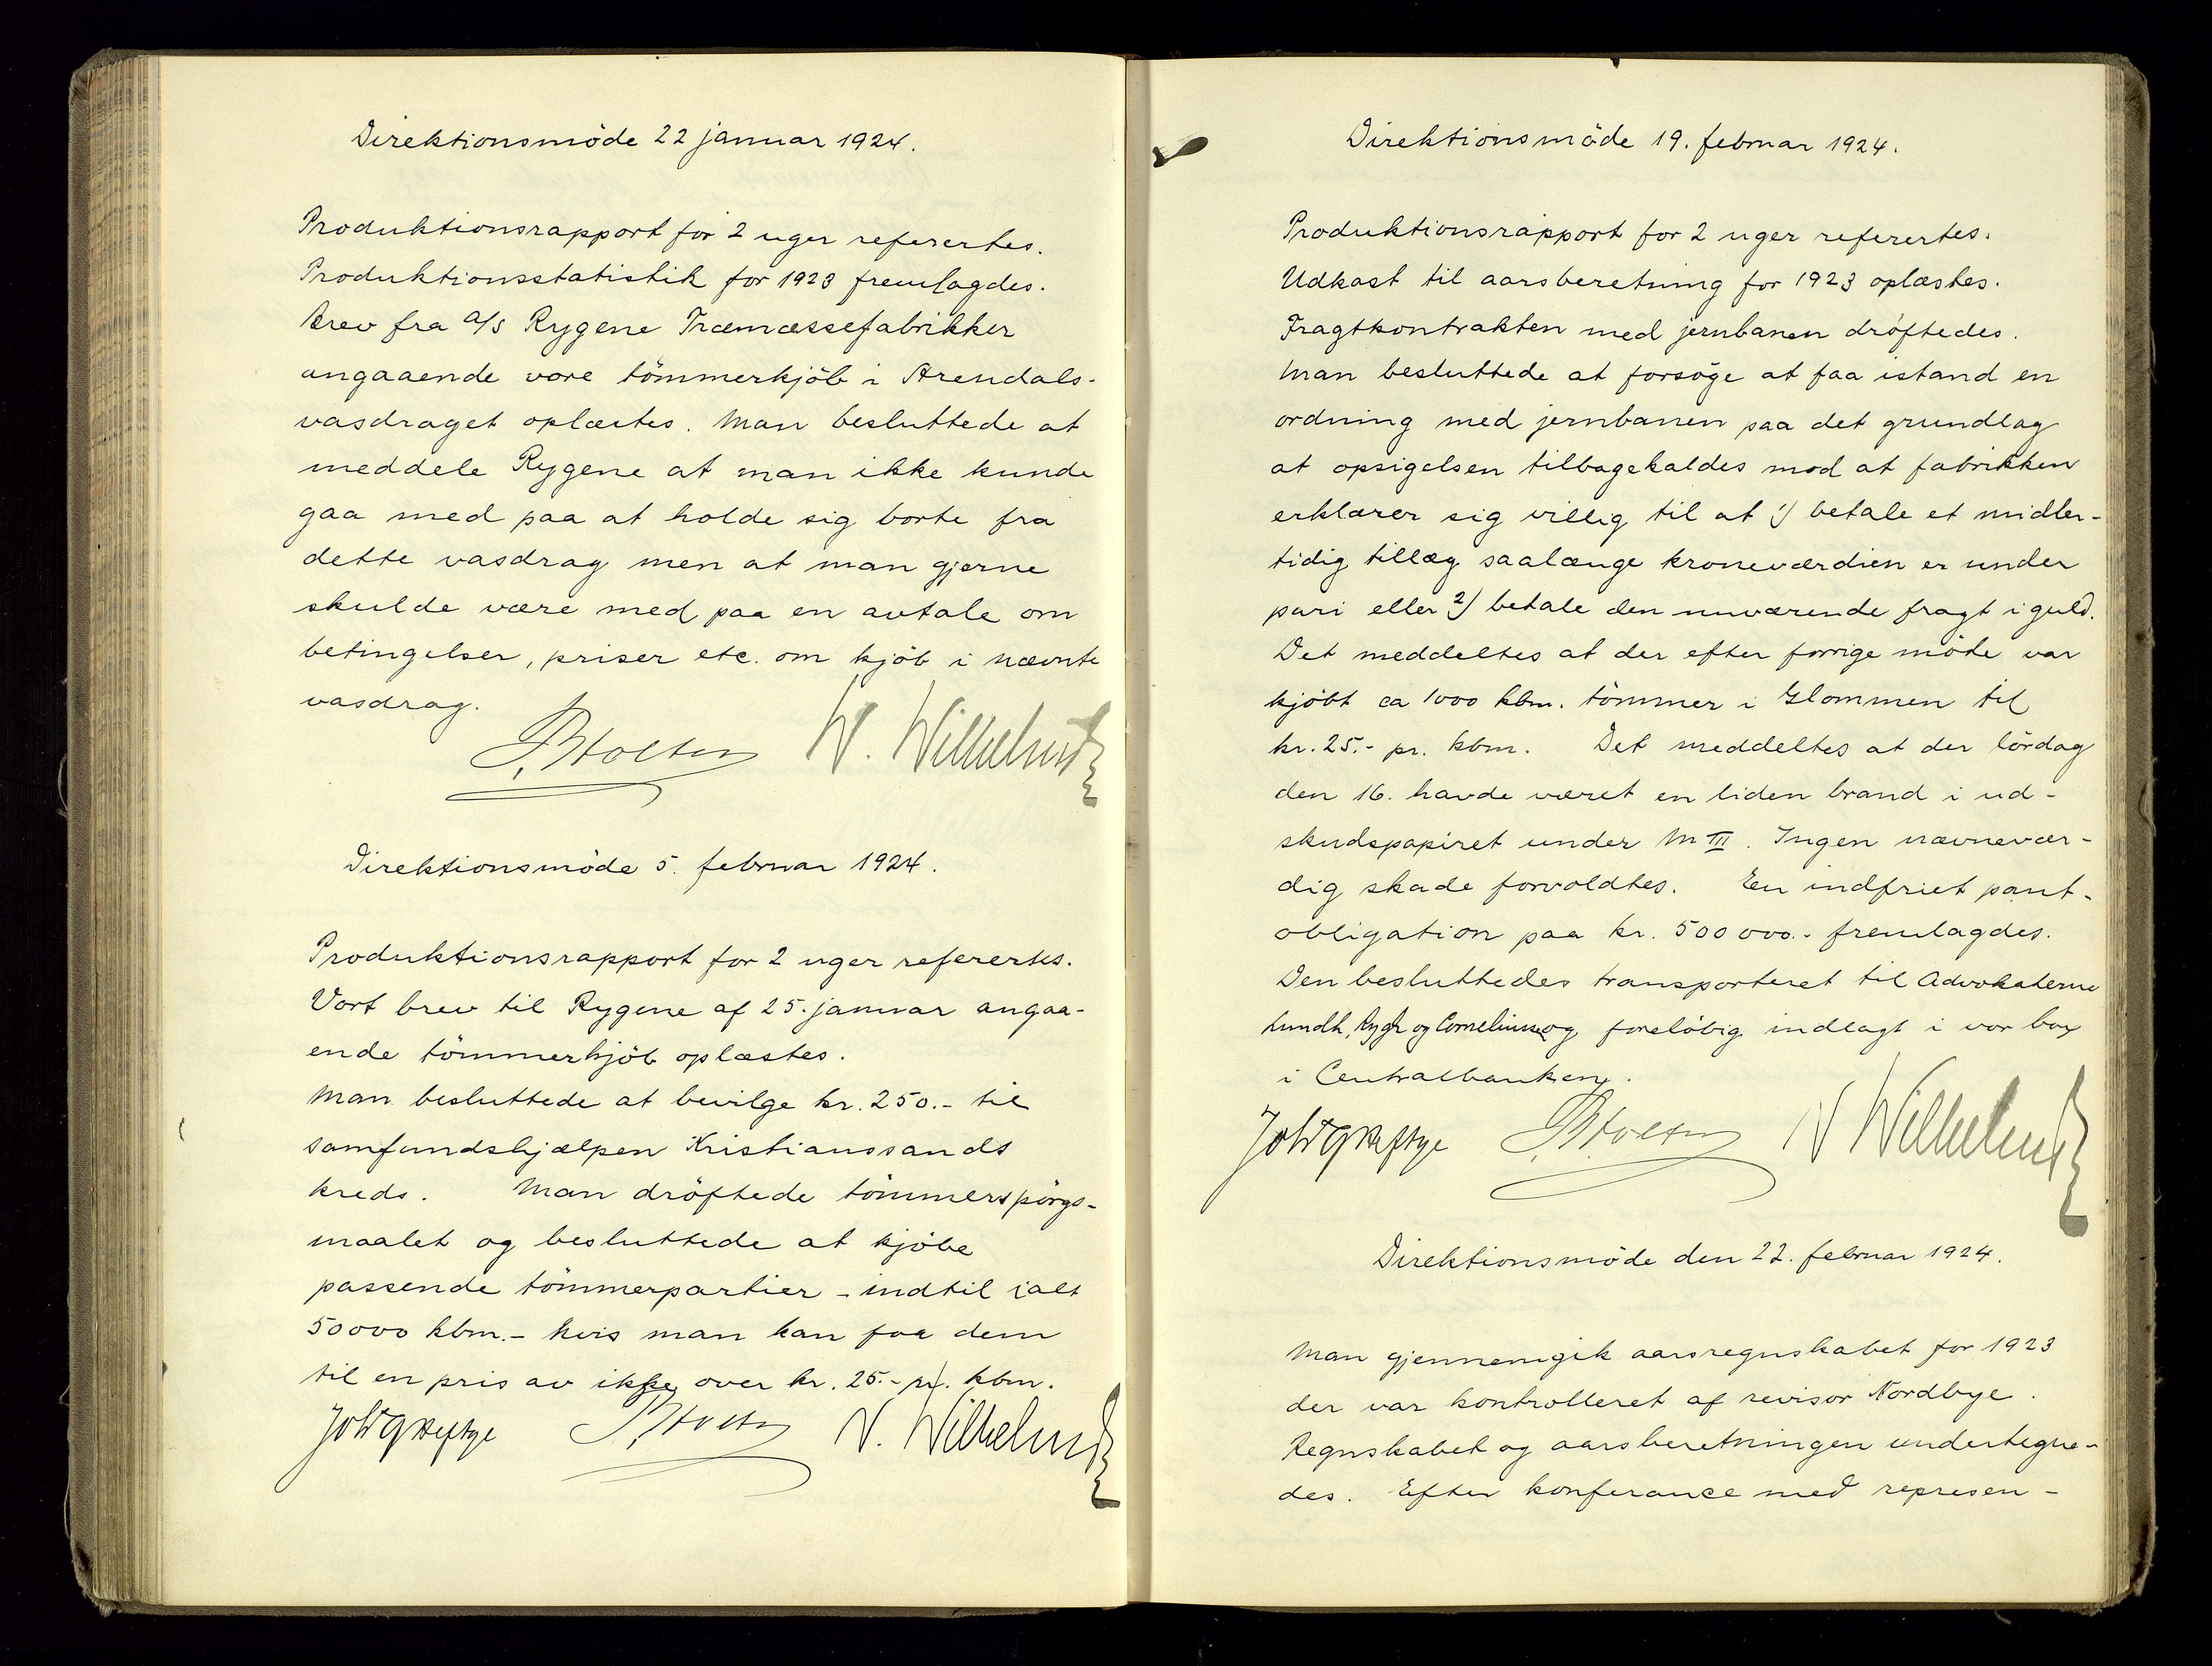 Direktionsmöde 22 januar 1924.
Produktionsrapport for 2 uger referertes.
Produktionsstatistik for 1923 fremlagdes.
Brev fra A/S Rygene Træmassefabrikker
angaaende vore tömmerkjöb i Arendals-
vasdraget oplæstes. Man besluttede at
meddele Rygene at man ikke kunde
gaa med paa at holde sig borte fra
dette vasdrag men at man gjerne
skulde være med paa en avtale om
betingelser, priser etc. om kjöb i nævnte
vasdrag.
W. Wilhelmsen
Direktionsmöde 5. februar 1924.
Produktionsrapport for 2 uger refertes.
Vort brev til Rygene af 25. januar angaa-
ende tömmerkjöb oplæstes.
Man besluttede at bevilge kr. 250.- til
samfundshjælpen Kristianssands
kreds. Man dröftede tömmerspörgs-
maalet og besluttede at kjöbe
passende tömmerpartier - indtil ialt
50000 kbm. - hvis man kan faa dem
til en pris av ikke over kr. 25.- pr. kbm.
W. Wilhelmsen
Direktionsmöde 19. februar 1924.
Produktionsrapport for 2 uger referertes.
Udkast til aarsberetning for 1923 oplæstes.
Fragtkontrakten med jernbanen dröftedes.
Man besluttede at forsöge at faa istand en
ordning med jernbanen paa det grundlag
at opsigelsen tilbagekaldes mod at fabrikken
erklærer sig villig til at 1) betale et midler-
tidig tillæg saalænge kroneværdien er under
pari eller 2) betale den nuværende fragt i guld.
Det meddeltes at der efter forrige möde var
kjöbt ca 1000 kbm. tömmer i Glommen til
kr. 25.- pr. kbm. Det meddeltes at der lördag
den 16. havde været en liden brand i ud-
skudspapiret under M III. Ingen nævnevær-
dig skade forvoldtes. En indfriet pant-
obligation paa kr. 500000.- fremlagdes.
Den besluttedes transporteret til Advokaterne
Lundh, Rygh og Cornelius og forelöbig indlagt i vor box
i Centralbanken.
W Wilhelmsen
Direktionsmöde den 22. februar 1924.
Man gjennemgik aarsregnskabet for 1923
der var kontrolleret af revisor Nordbye.
Regnskabet og aarsberetningen undertegne-
des. Efter konferance med represen-